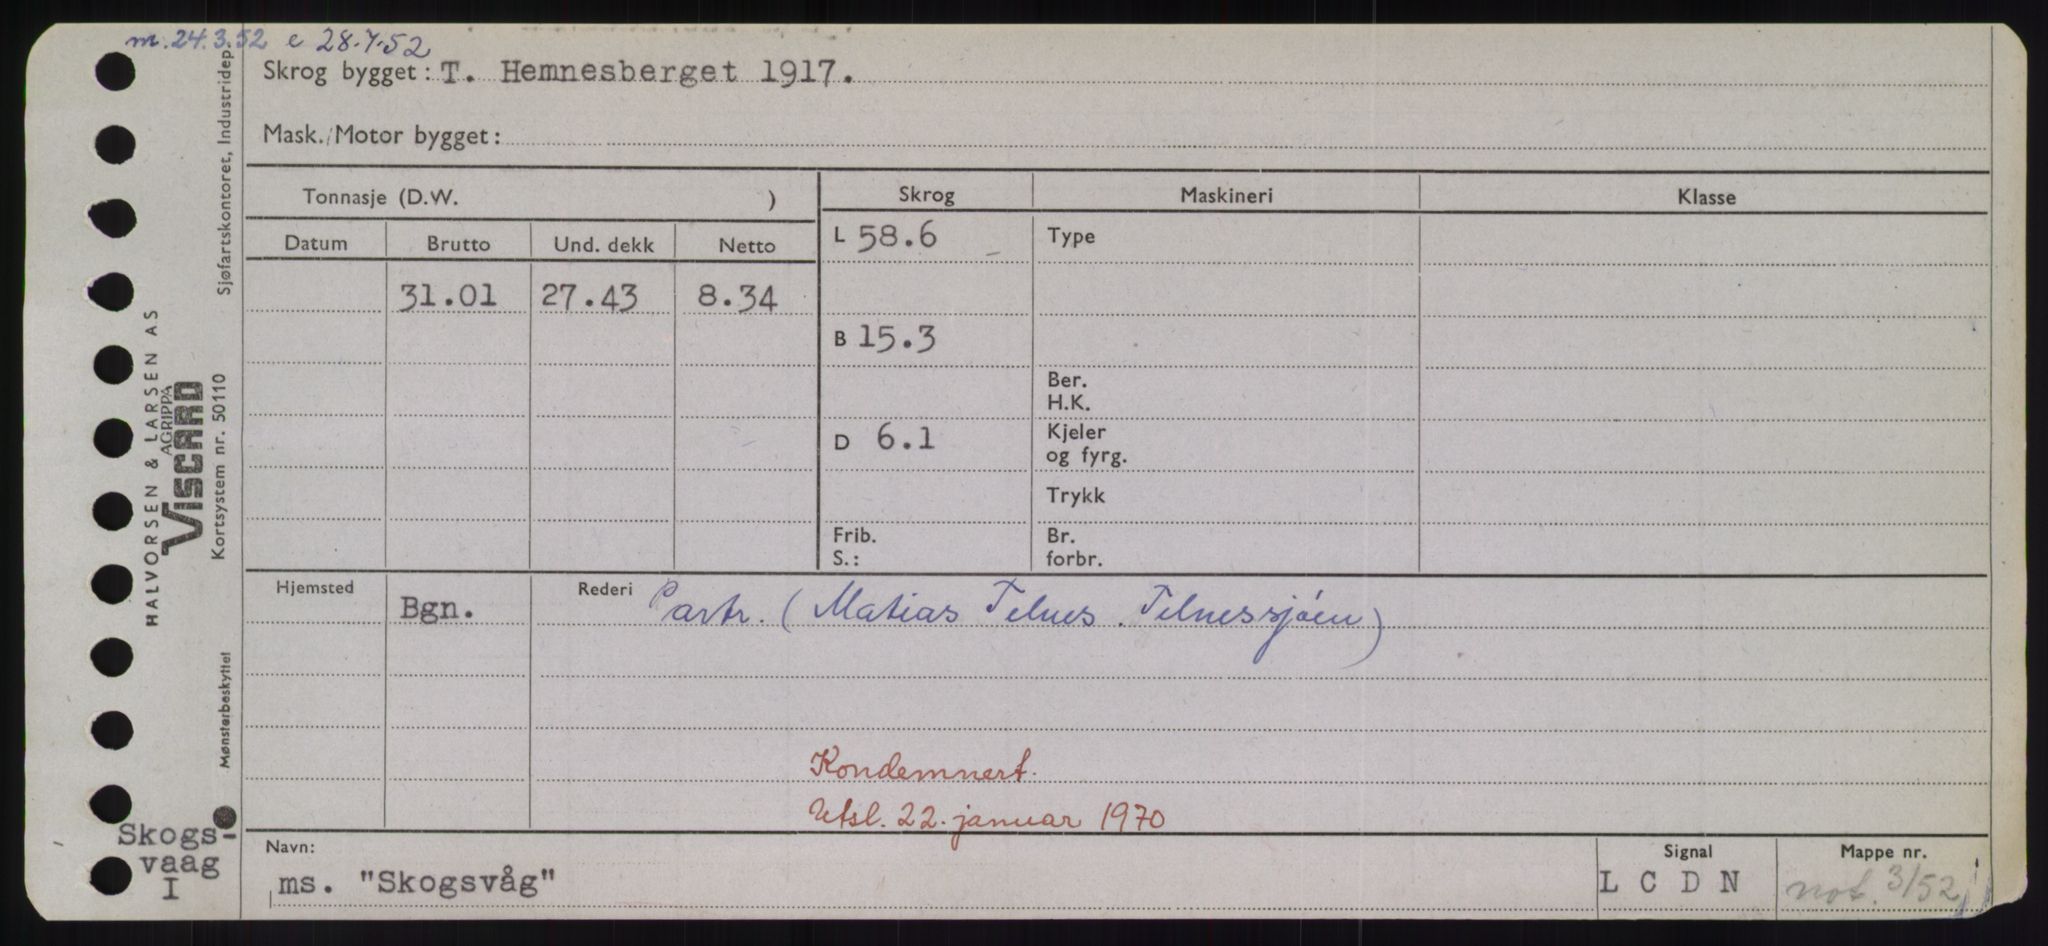 m. 24.3.52 e 28.7.52
Skrog bygget: T. Hemnesberget 1917.
Mask./Motor bygget:
Tonnasje (D.W. )
Skrog
Maskineri
Klasse
Datum
Brutto
Und. dekk
Netto
L 58.6
Type
31.01
27.43
8.34
B 15.3
Ber.
H.K.
D 6.1
Kjeler
og fyrg.
Trykk
Frib.
S.:
Br.
forbr.
Hjemsted
Bgn.
Rederi
Partr. (Matias Telnes. Telnessjöen)
Kondemnert.
Utsl. 22. januar 1970
Navn:
ms. "Skogsvåg"
Signal
L C D N
Mappe nr.
not. 3/52
Skogs-
vaag
I
Sjøfartskontoret, Industridep.
HALVORSEN & LARSEN AS
AGRIPPA
VISCARD
Kortsystem nr. 50110
Mønsterbeskyttet